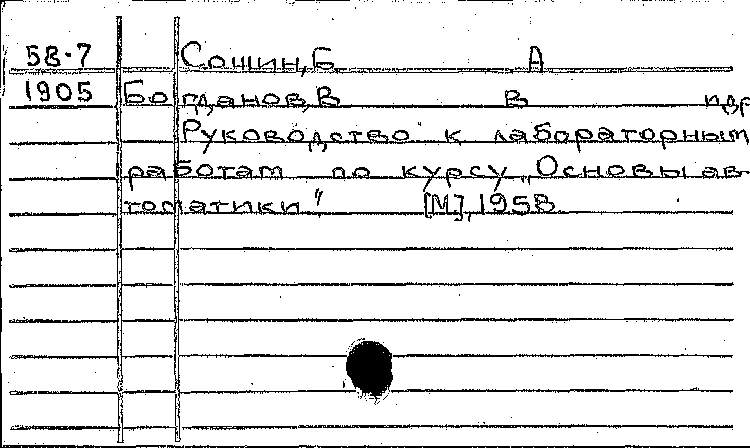 58-7 Сошин, Б А
1905 Богданов, В В и др
Руководство к лабораторным
работам по курсу „Основы ав
томатики" [М], 1958